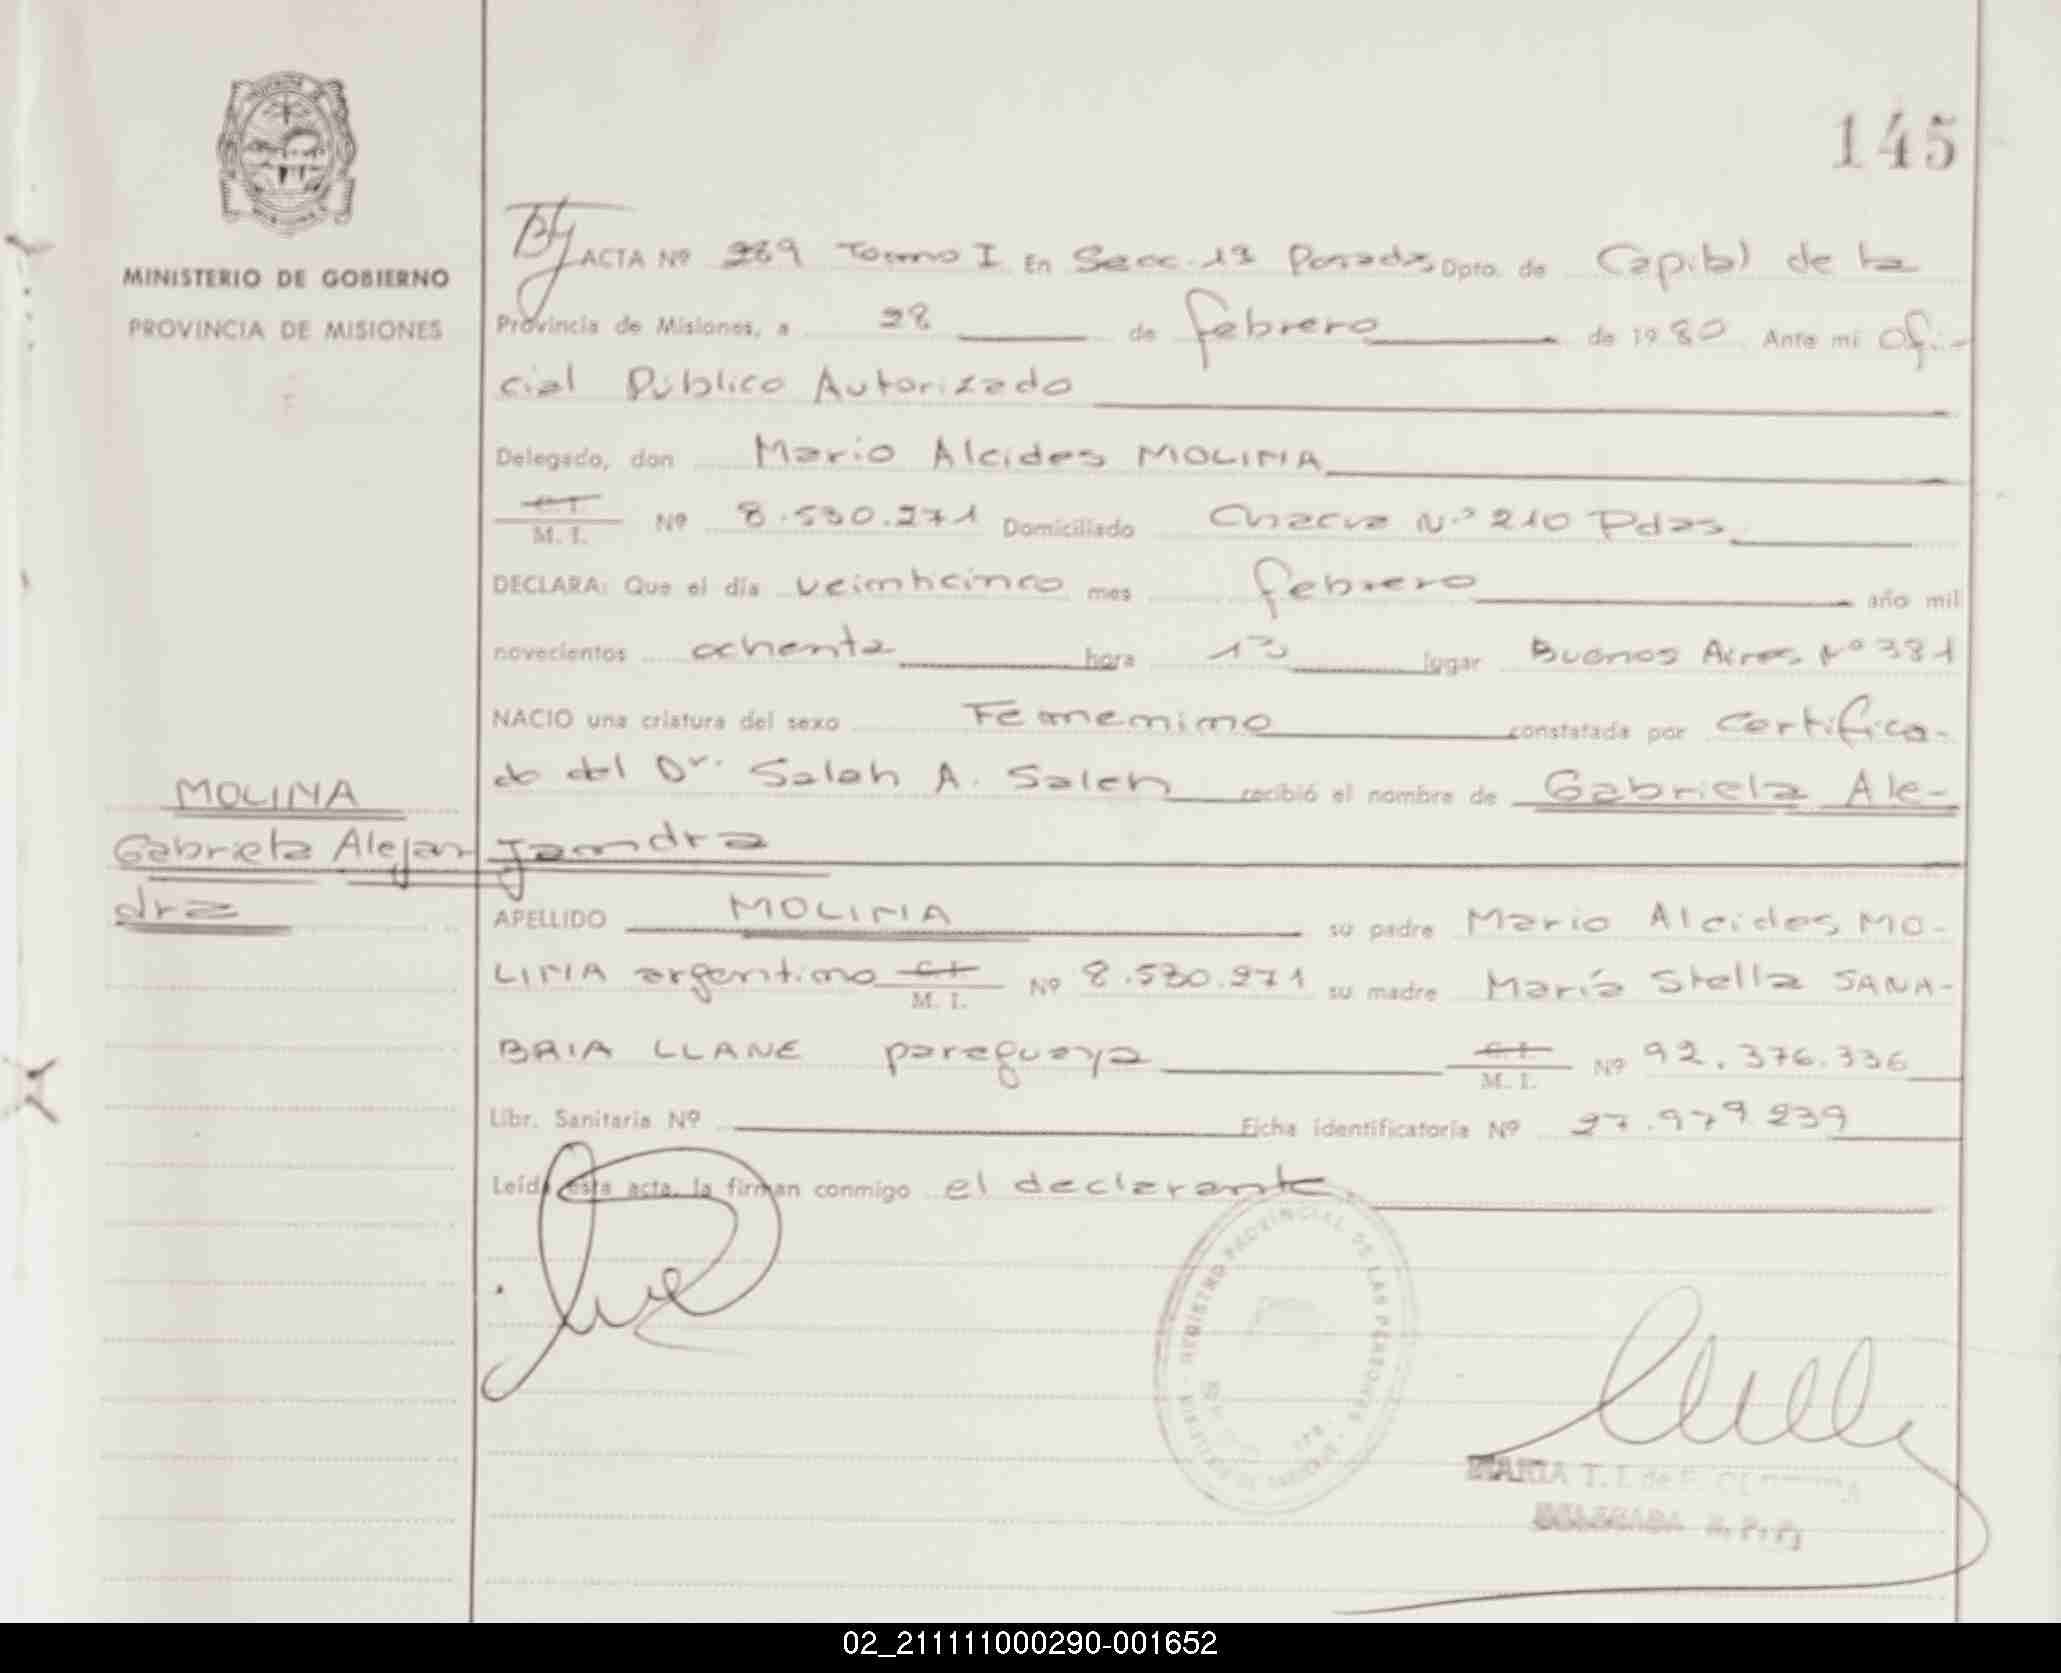 145
MINISTERIO DE GOBIERNO
PROVINCIA DE MISIONES
ACTA Nº 289 Tomo I En Secc. 1ª Posadas Dpto. de Capital de la
Provincia de Misiones, a 28 de febrero de 1980 Ante mi Ofi-
cial Público Autorizado
Delegado, don Mario Alcides MOLINA
C.I.
M. I. Nº 8.530.271 Domiciliado Chacra Nº 210 Pdas
DECLARA: Que el día veinticinco mes febrero año mil
novecientos ochenta hora 13 lugar Buenos Aires Nº 381
NACIO una criatura del sexo Femenino constatada por Certifica-
do del Dr. Saleh A. Saleh recibió el nombre de Gabriela Ale-
jandra
MOLINA
Gabriela Alejan
dra
APELLIDO MOLINA su padre Mario Alcides MO-
LINA argentino C.I.
M. I. Nº 8.530.271 su madre María Stella SANA-
BRIA LLANE paraguaya C.I.
M. I. Nº 92.376.336
Libr. Sanitaria Nº Ficha identificatoria Nº 27.979.239
Leída esta acta, la firman conmigo el declarante
REGISTRO PROVINCIAL DE LAS PERSONAS
MARIA T. I. de
DELEGADA R. P. P.
02_211111000290-001652